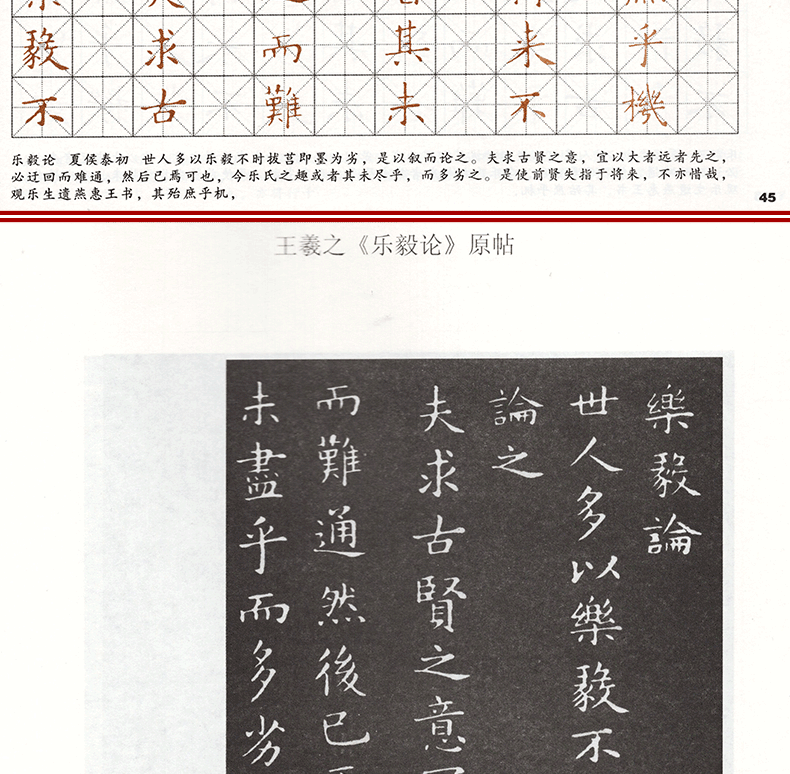 毅不
求古
而難
其未
来不
乎機
乐毅论 夏侯泰初 世人多以乐毅不时拔莒即墨为劣，是以叙而论之。夫求古贤之意，宜以大者远者先之，
必迂回而难通，然后已焉可也，今乐氏之趣或者其未尽乎，而多劣之。是使前贤失指于将来，不亦惜哉，
观乐生遗燕惠王书，其殆庶乎机，
45
王羲之《乐毅论》原帖
樂毅論
世人多以樂毅不
論之
夫求古賢之意
而難通然後已
未盡乎而多劣